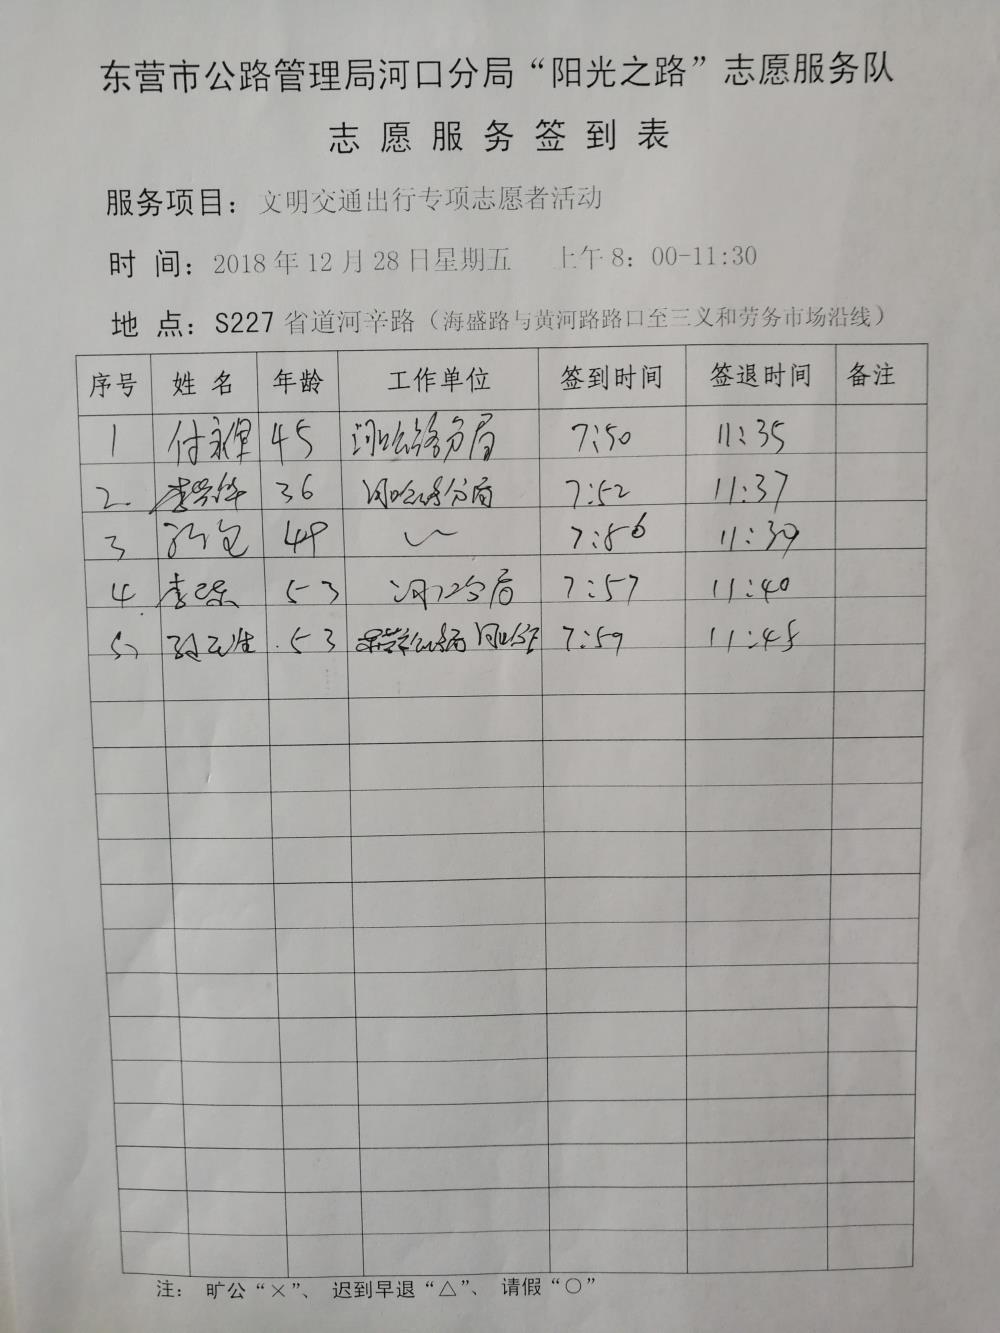 东营市公路管理局河口分局“阳光之路”志愿服务队
志愿服务签到表
服务项目：文明交通出行专项志愿者活动
时 间：2018年12月28日星期五 上午8：00-11:30
地 点：S227省道河辛路（海盛路与黄河路路口至三义和劳务市场沿线）
序号 姓名 年龄 工作单位 签到时间 签退时间 备注
1 付 45 河口公路分局 7:50 11:35
2. 李 36 河口公路分局 7:52 11:37
3 49 7:56 11:39
4 李 53 河口分局 7:57 11:40
5 53 河口分局 7:59 11:45
注： 旷公“×”、 迟到早退“△”、 请假“○”